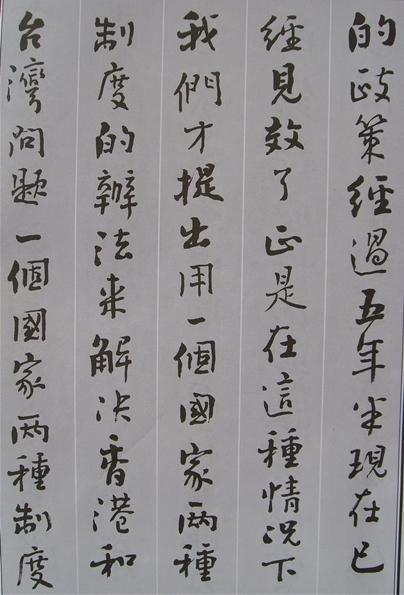 的政策經過五年半現在已
經見效了正是在這種情况下
我們才提出用一個國家两種
制度的辦法来解决香港和
台灣问题一個國家两種制度